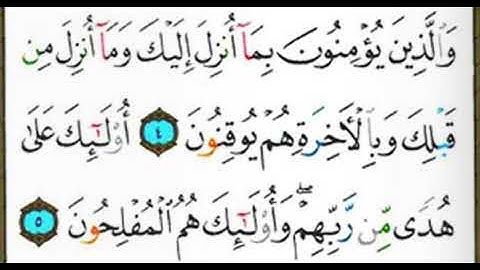 وَٱلَّذِينَ يُؤْمِنُونَ بِمَآ أُنزِلَ إِلَيْكَ وَمَآ أُنزِلَ مِن
قَبْلِكَ وَبِٱلْأَخِرَةِ هُمْ يُوقِنُونَ ٤ أُوْلَـٰٓئِكَ عَلَىٰ
هُدًى مِّن رَّبِّهِمْ ۖ وَأُوْلَـٰٓئِكَ هُمُ ٱلْمُفْلِحُونَ ٥